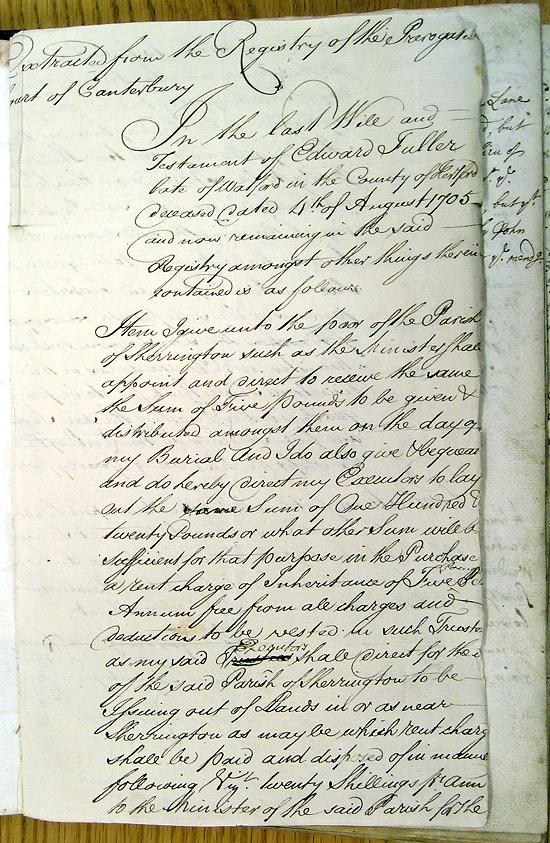 Extracted from the Registry of the Prerogative
Court of Canterbury
In the last Will and
Testament of Edward Fuller
late of Watford in the County of Hertford
deceased dated 4th of August 1705
and now remaining in the said
Registry amongst other things therein
contained is as follows
Item I give unto the poor of the Parish
of Sherrington such as the Minister shall
appoint and direct to receive the same
the Sum of Five pounds to be given &
distributed amongst them on the day of
my Burial And I do also give & bequeat
and do hereby direct my Executors to lay
out the same Sum of One Hundred &
twenty Pounds or what other Sum will be
sufficient for that purpose in the Purchase
a rent charge of Inheritance of Five Pounds
Annum free from all charges and
deductions to be vested in such Trustee
as my said Executors shall direct for the
of the said Parish of Sherrington to be
Issuing out of Lands in or as near
Sherrington as may be which rent charg
shall be paid and disposed of in manne
following Vizt. twenty Shillings pr Ann
to the Minister of the said Parish for the
Lane
but
of
ye
but yt
John
ye